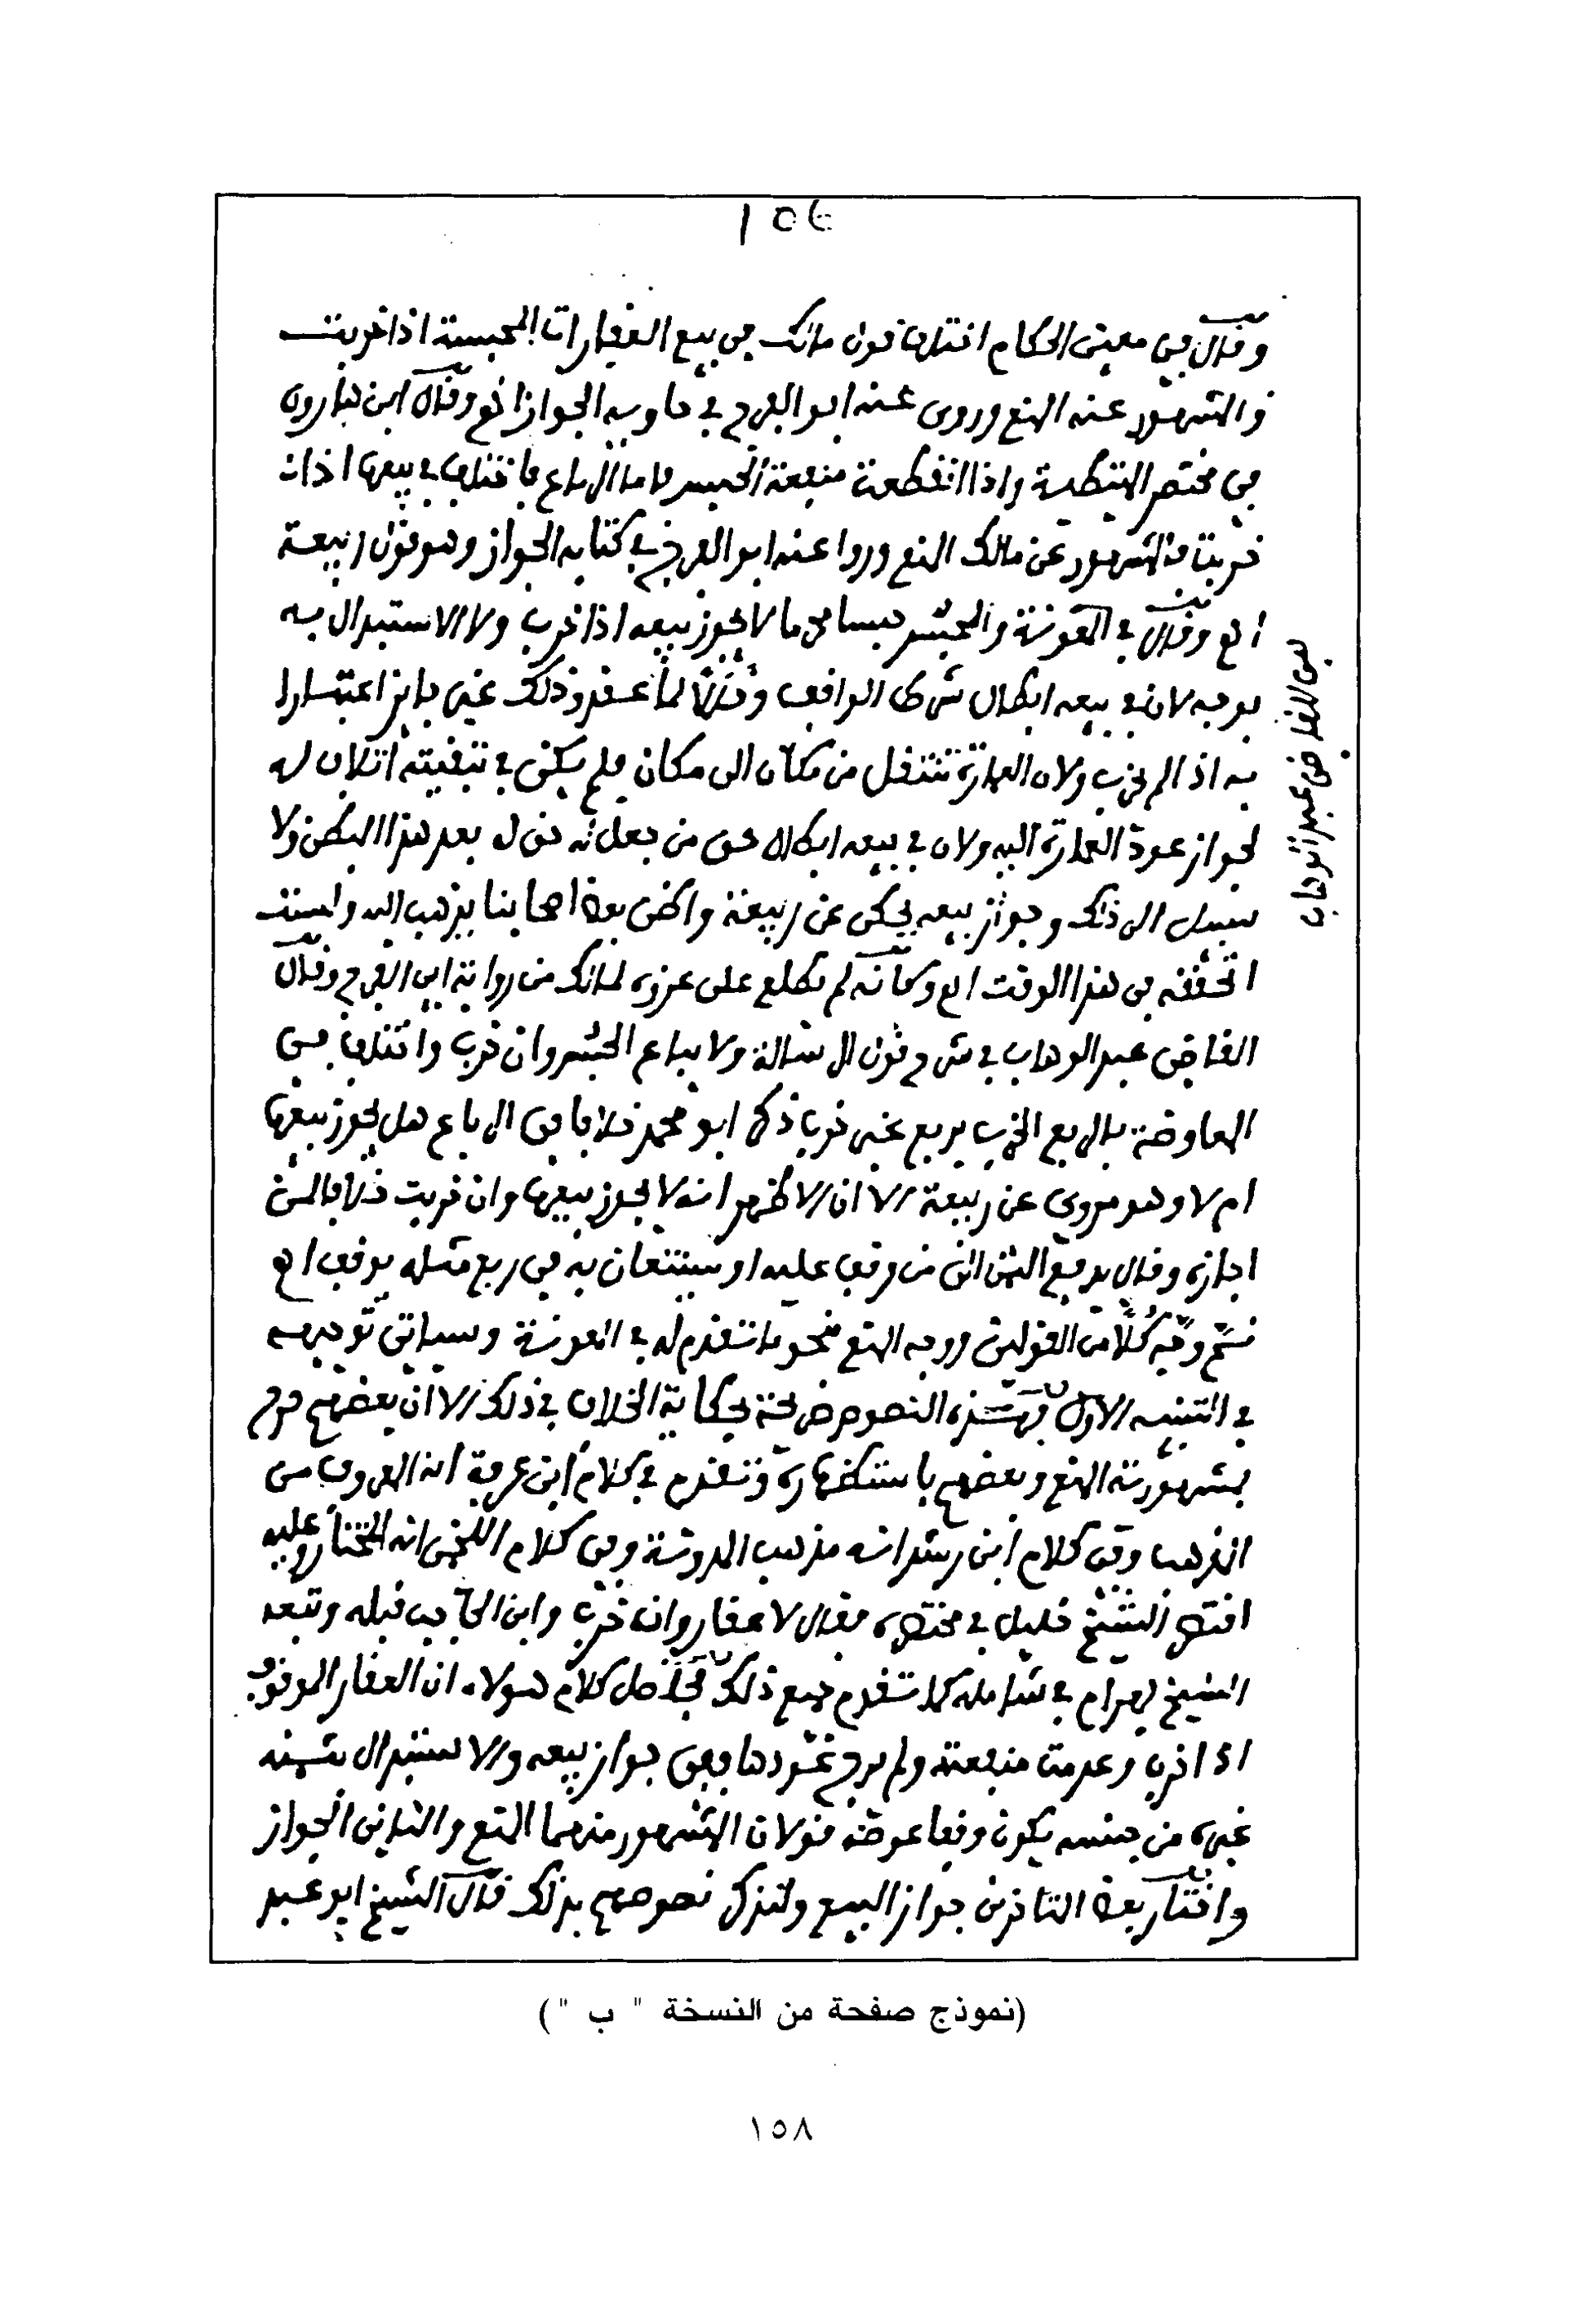 ١٥٤
وقال في معين الحكام اختلف قول مالك في بيع العقارات المحبسة اذا خربت
والمشهور عنه المنع وروى عنه ابو الفرج في حاويه الجواز انتهى وقال ابن هارون
في مختصر المتيطية واذا انقطعت منفعة الحبس فاما الرباع فاختلف في بيعها اذا
خربت فالمشهور عن مالك المنع وروا عنه ابو الفرج في كتابه الجواز وهو قول ربيعة
اهـ وقال في المعونة والمحبس حبسا مما لا يجوز بيعه اذا خرب ولا الاستبدال به
بوجه لان في بيعه ابطال شرط الواقف لما عقده وذلك غير جايز اعتبارا
به اذا لم يخرب ولان العمارة تنتقل من مكان الى مكان فلم يكن في تبقيته اتلاف له
لجواز عودة العمارة اليه ولان في بيعه ابطال حق من جعل له حق له بعد هذا البطن ولا
سبيل الى ذلك وجواز بيعه يحكى عن ربيعة واظن بعض اصحابنا يذهب اليه ولست
اتحققه في هذا الوقت اهـ وكأنه لم يطلع على عزوه لمالك من رواية ابي الفرج وقال
القاضي عبد الوهاب في شرح قول الرسالة ولا يباع الحبس وان خرب واختلف في
المعاوضة بالربع الخرب بربع غير خرب ذكر ابو محمد خلافا في الرباع هل يجوز بيعها
ام لا وهو مروي عن ربيعة الا ان الاظهر انه لا يجوز بيعها وان خربت خلافا لمن
اجازه وقال يدفع الثمن الى من وقف عليه او يستعان به في ربع مثله يوقف اهـ
ثم وجه كلا من القولين ووجه المنع بنحو ما تقدم له في المعونة وسياتي توجيهه
في التنبيه الاول فهذه النصوص صريحة بحكاية الخلاف في ذلك الا ان بعضهم صرح
بمشهورية المنع وبعضهم باستظهاره وتقدم في كلام ابن عرفة انه المعروف من
المذهب وفي كلام ابن رشد انه مذهب المدونة وفي كلام اللخمي انه المختار وعليه
اقتصر الشيخ خليل في مختصره فقال لا عقار وان خرب وابن الحاجب قبله وتبعه
الشيخ بهرام في شامله كما تقدم جميع ذلك فحاصل كلام هولاء ان العقار الموقوف
اذا خرب وعدمت منفعته ولم يرج عودها ففي جواز بيعه والاستبدال بثمنه
غيره من جنسه يكون وقفا عوضه قولان المشهور منهما المنع والثاني الجواز
واختار بعض المتاخرين جواز البيع ولنذكر نصوصهم بذلك قال الشيخ ابو عبد
نص القاضي عبد الوهاب
(نموذج صفحة من النسخة " ب ")
١٥٨